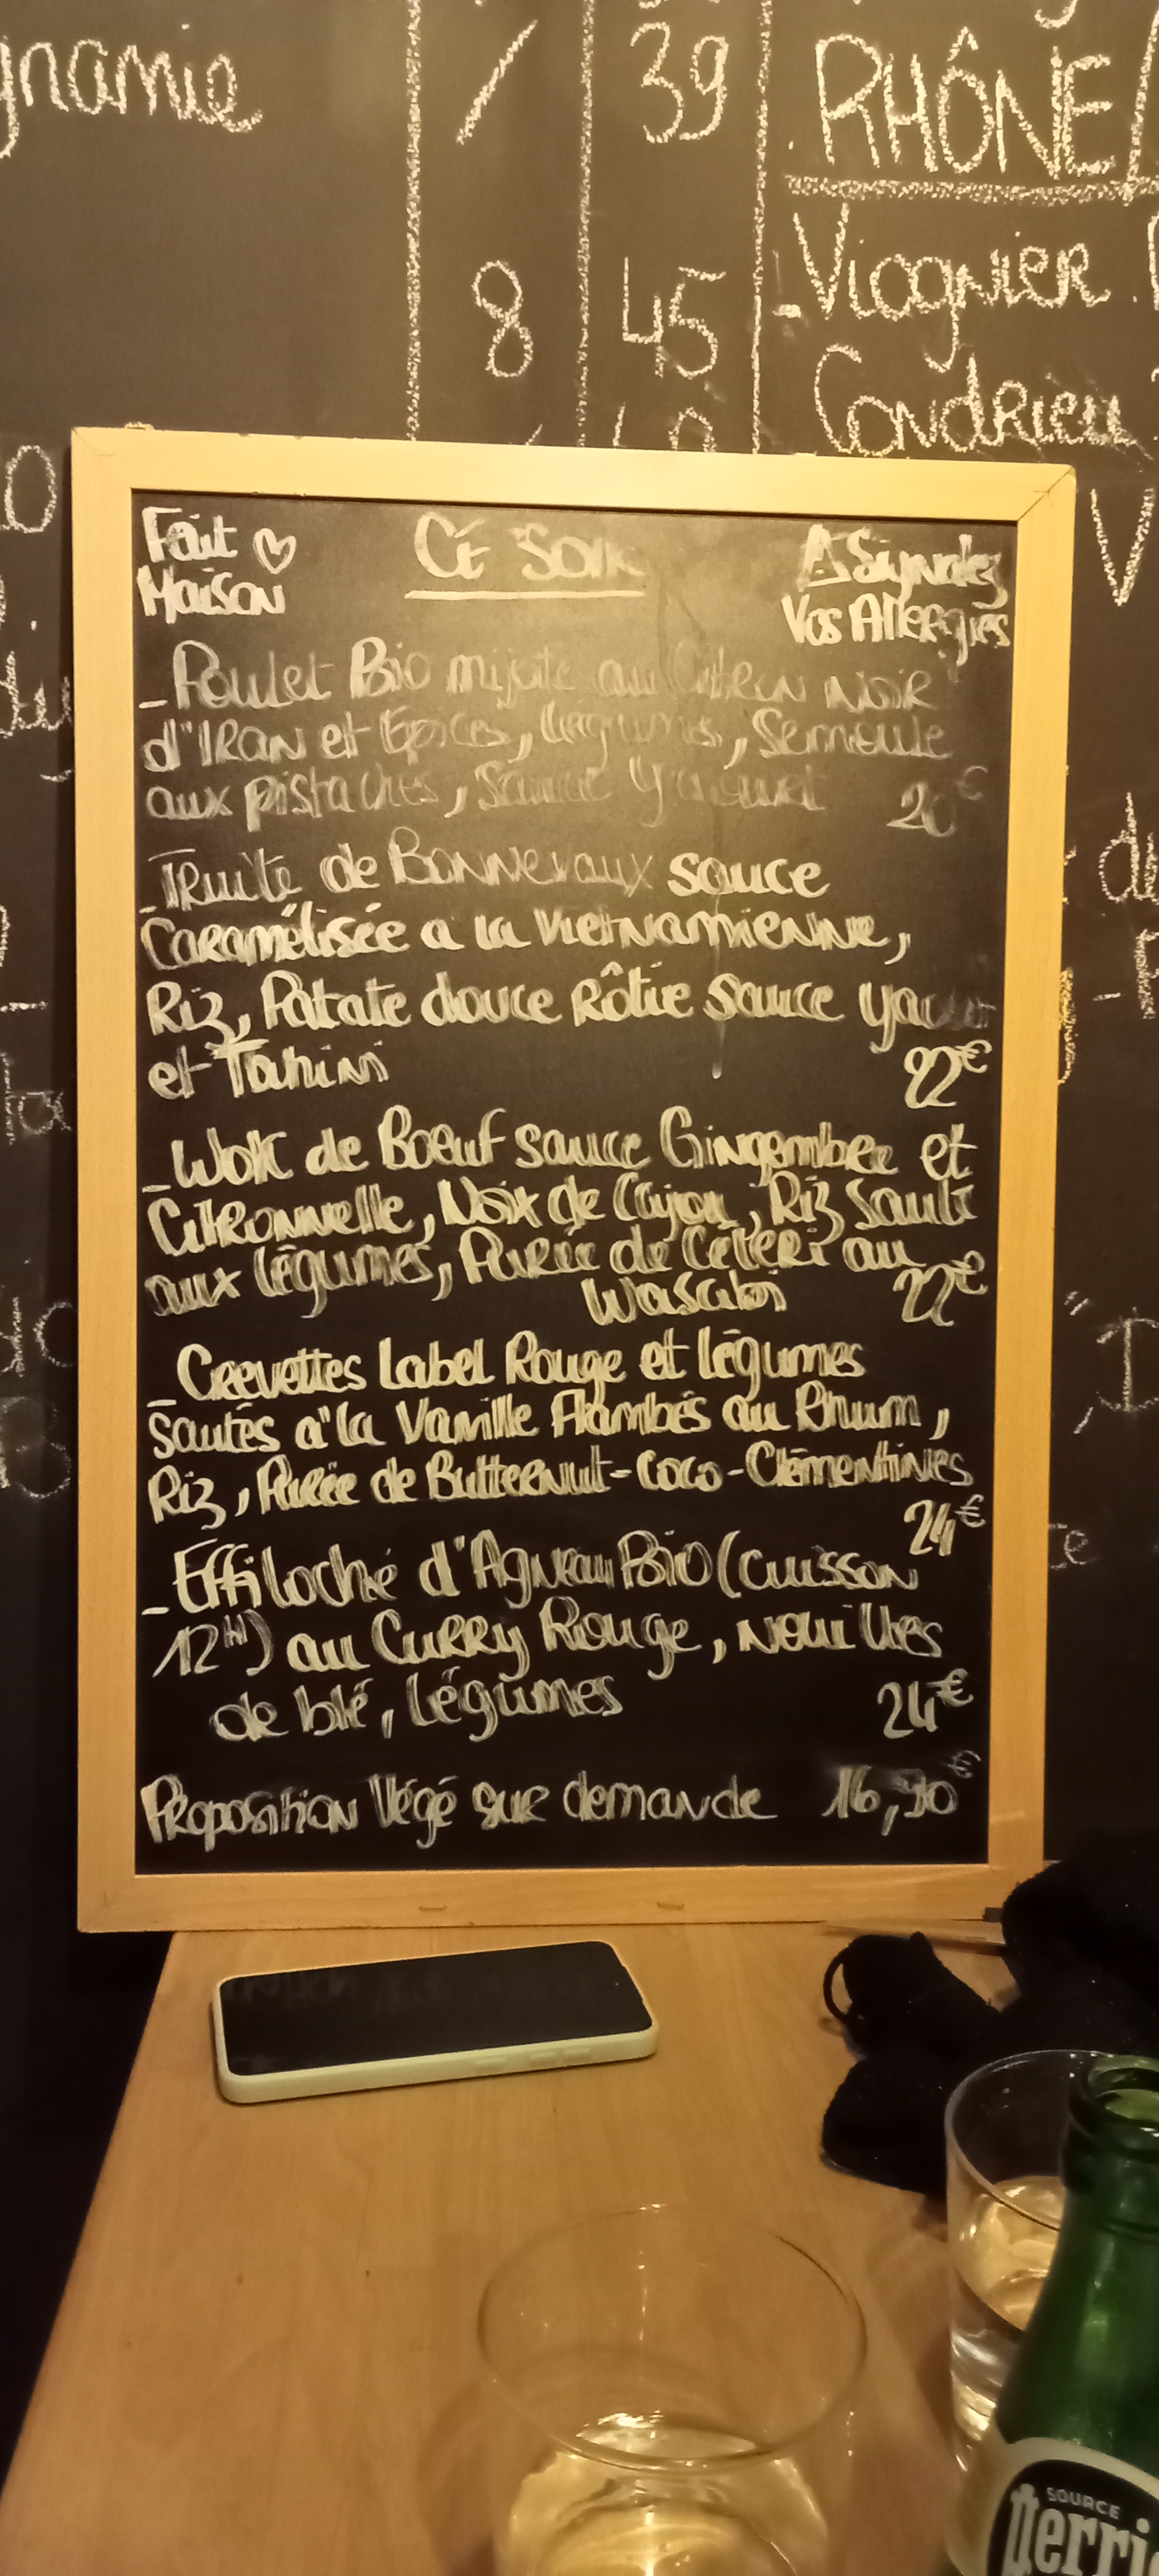 gnamie / 39 RHÔNE
8 45 - Viognier
Condrieu
Fait ♡
Maison
Ce Soir
⚠ Signalez
Vos Allergies
- Poulet Bio mijoté au Citron noir
d'Iran et Épices, légumes, Semoule
aux pistaches, Sauce Yaourt 20€
- Truite de Bonnevaux sauce
Caramélisée a la Vietnamienne,
Riz, Patate douce Rôtie sauce yaourt
et Tahini 22€
- Wok de Boeuf sauce Gingembre et
Citronnelle, Noix de Cajou, Riz Sauté
aux légumes, Purée de Céleri au
Wasabi 22€
- Crevettes Label Rouge et légumes
Sautés à la Vanille Flambés au Rhum,
Riz, Purée de Butternut-Coco-Clémentines
24€
- Effiloché d'Agneau Bio (cuisson
12H) au Curry Rouge, nouilles
de blé, légumes 24€
Proposition Végé sur demande 16,90€
SOURCE
Perri